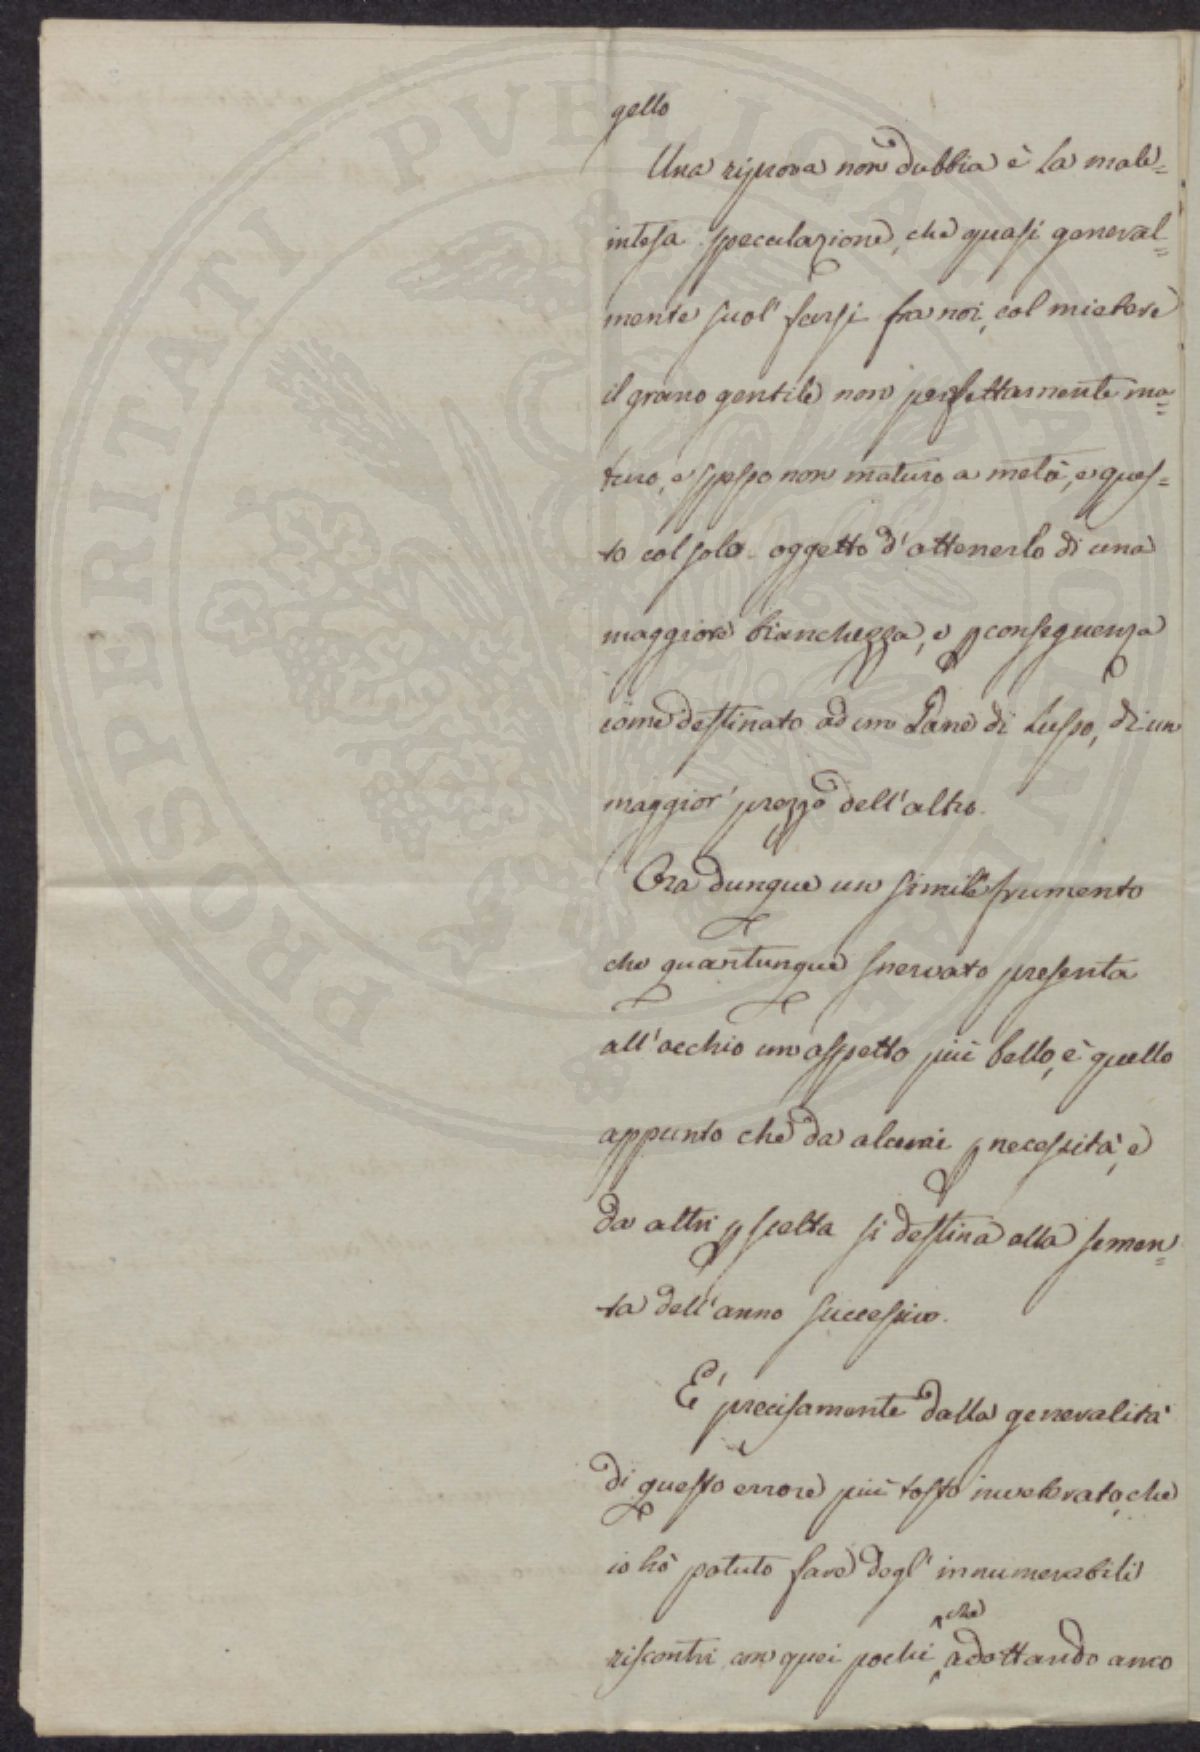 gello
Una riprova non dubbia è la male=
intesa speculazione, che quasi general=
mente suol' farsi fra noi, col mietere
il grano gentile non perfettamente ma=
turo, e spesso non maturo a metà, e ques=
to col solo oggetto d'ottenerlo di una
maggiore bianchezza, e p conseguenza
come destinato ad un Pane di Lusso, di un
maggior' prezzo dell'altro.
Ora dunque un simile frumento
che quantunque snervato presenta
all'occhio un aspetto più bello, è quello
appunto che da alcuni p necessità, e
da altri p scelta si destina alla semen=
ta dell'anno successivo.
E' precisamente dalla generalità
di questo errore più tosto inveterato, che
io hò potuto fare degl' innumerabili
riscontri con quei pochi, che adottando anco
PROSPERITATI PVBLICAE AVGENDAE